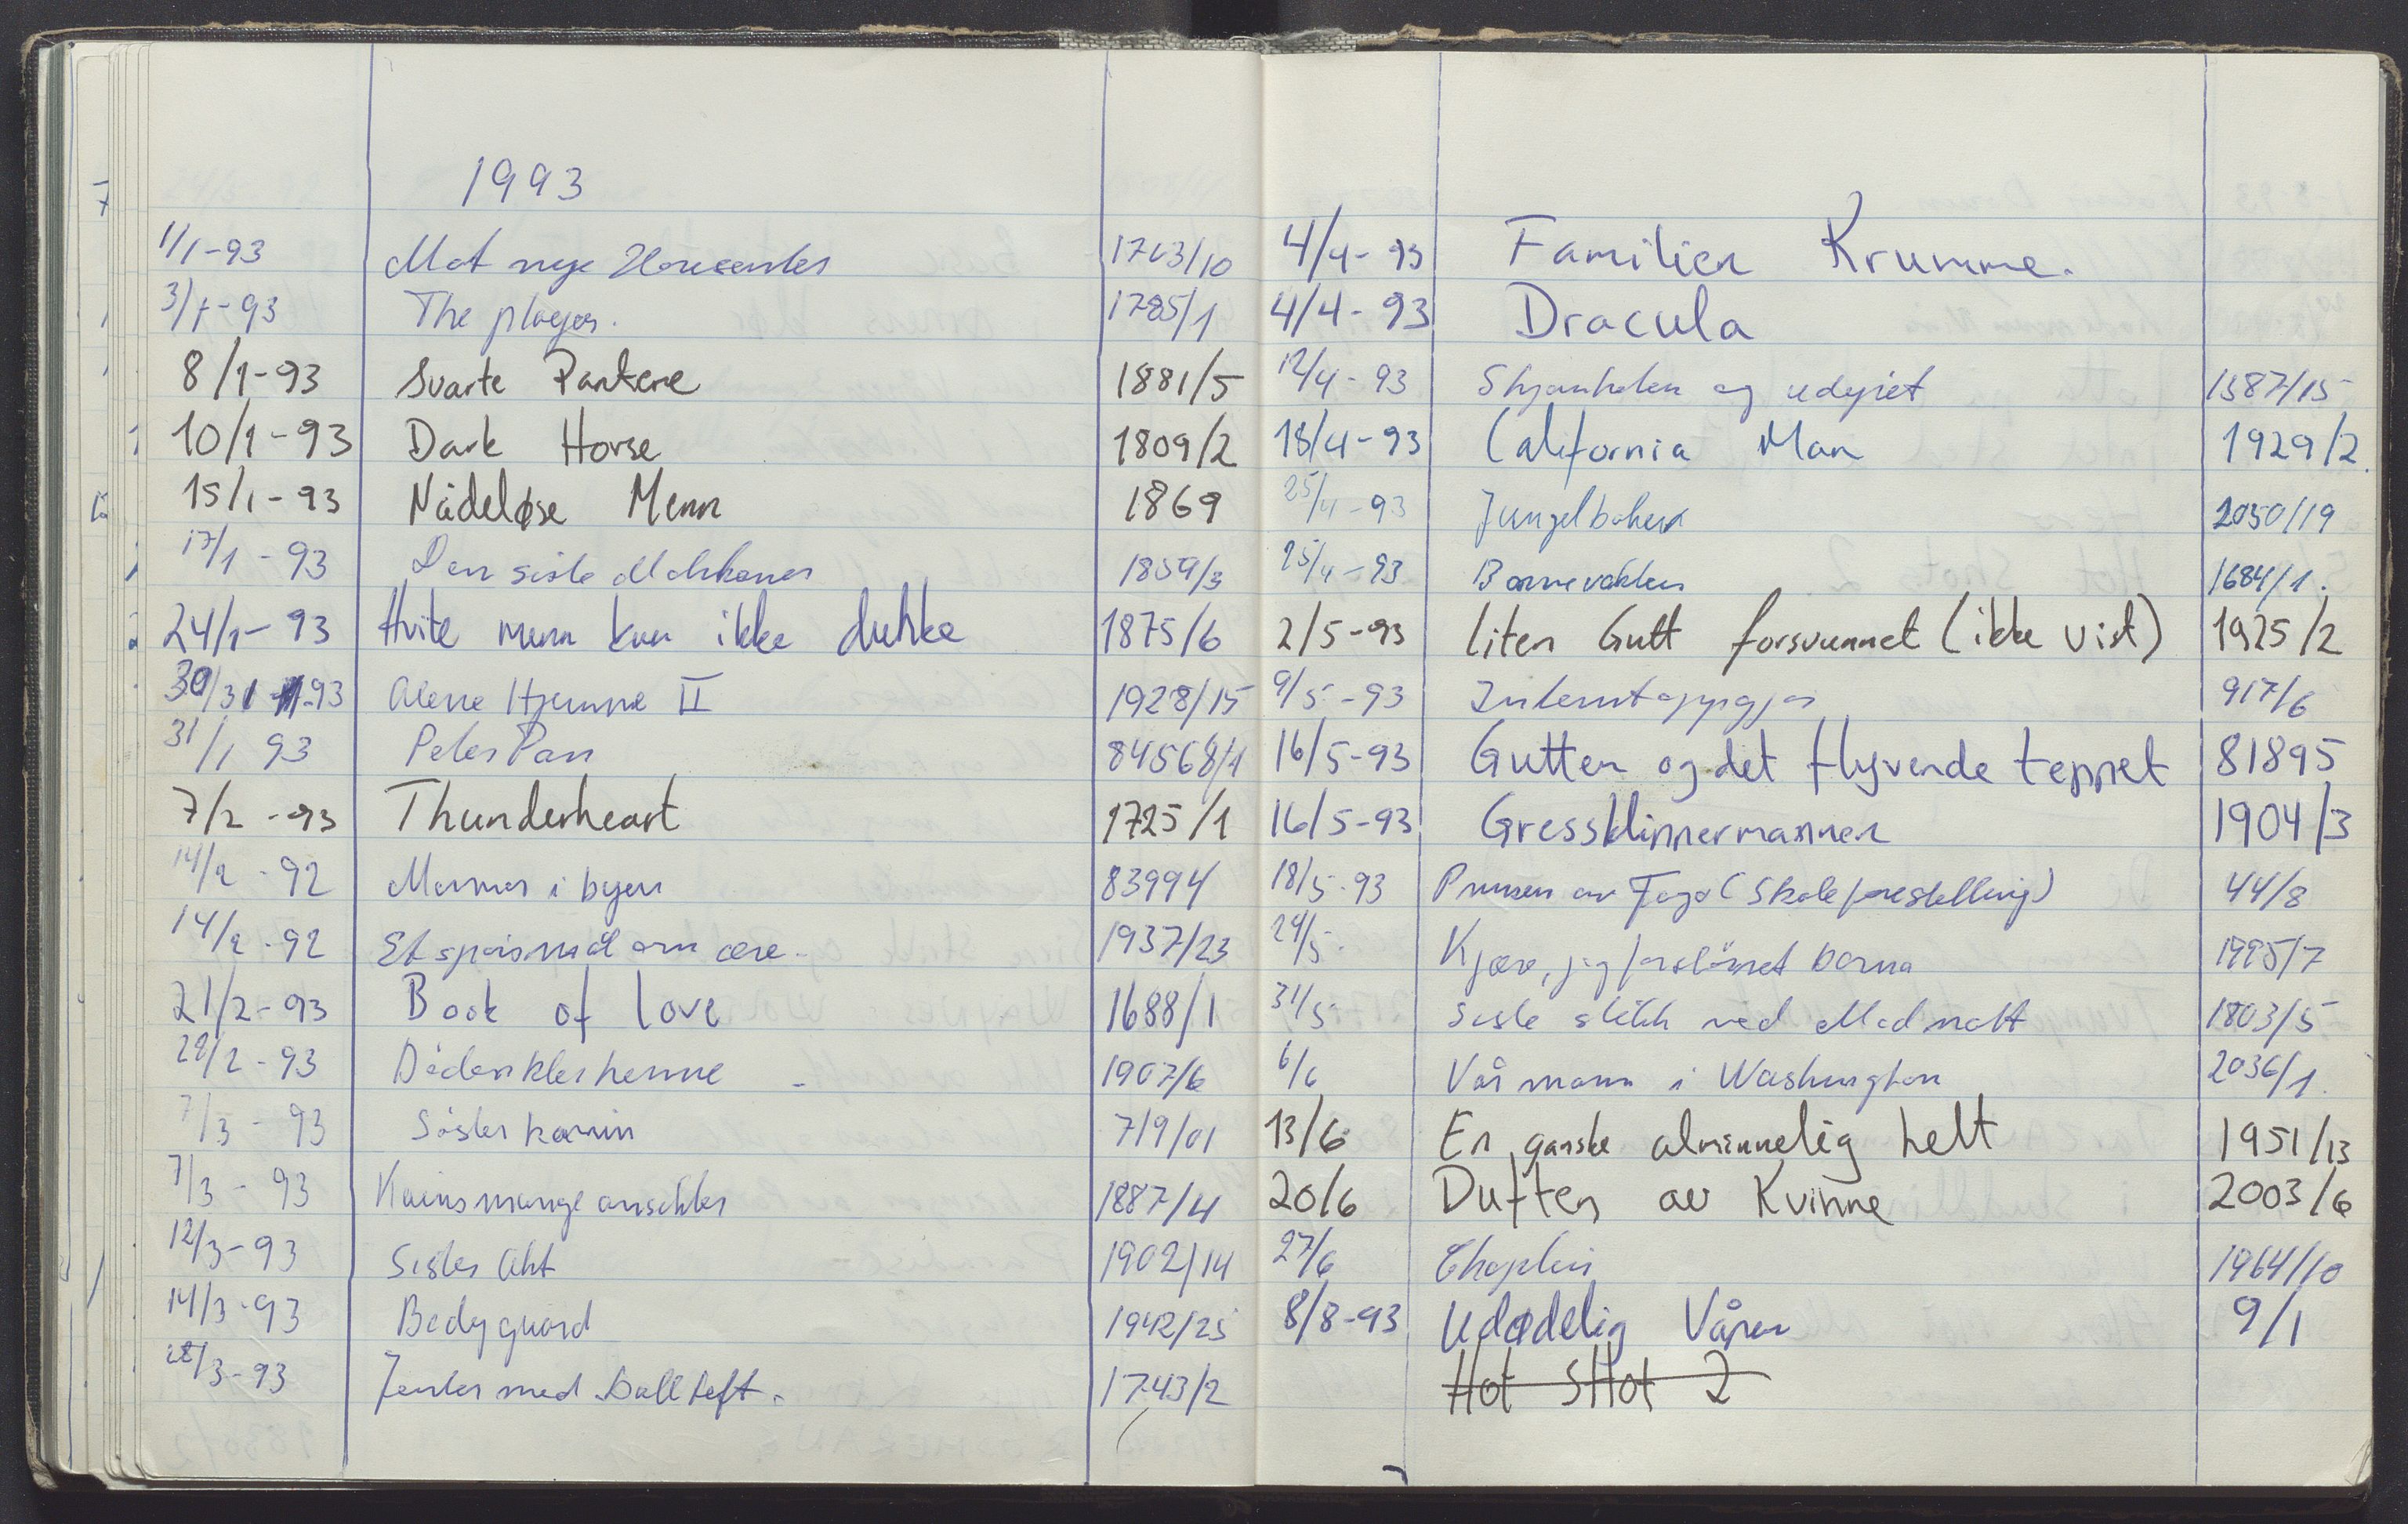 1993
1/1-93 Mot nye Horisonter 1703/10
3/1-93 The player. 1785/1
8/1-93 Svarte Pantere 1881/5
10/1-93 Dark Horse 1809/2
15/1-93 Nådeløse Menn 1869
17/1-93 Den siste Mohikaner 1859/3
24/1-93 Hvite menn kan ikke dunke 1875/6
30/31-1-93 Alene Hjemme II 1928/15
31/1 93 Peter Pan 84568/1
7/2-93 Thunderheart 1725/1
14/2-92 Mormor i byen 83994
14/2-92 Et spørsmål om ære. 1937/23
21/2-93 Book of love 1688/1
28/2-93 Døden kler henne 1907/6
7/3-93 Søsken kjærlig 719/01
7/3-93 Kains mange ansikter 1887/4
12/3-93 Sister Akt 1902/14
14/3-93 Bodyguard 1942/25
28/3-93 Jenter med Ballteft. 1743/2
4/4-93 Familien Krumme.
4/4-93 Dracula
12/4-93 Skjønnheten og udyret 1587/15
18/4-93 California Man 1929/2.
25/4-93 Jungelboken 2050/19
25/4-93 Barnevakten 1684/1.
2/5-93 liten Gutt forsvunnet (ikke vist) 1925/2
9/5-93 917/6
16/5-93 Gutten og det flyvende teppet 81895
16/5-93 Gressklippermannen 1904/3
18/5-93 Prinsen av Fogo (Skoleforestelling) 44/8
24/5- Kjære, jeg forstørret barna 1995/7
31/5 Siste stikk med Madnatt 1803/5
6/6 Vår mann i Washington 2036/1.
13/6 En ganske alminnelig helt 1951/13
20/6 Duften av Kvinne 2003/6
27/6 Chaplin 1964/10
8/8-93 Udødelig Våren 9/1
Hot SHot 2